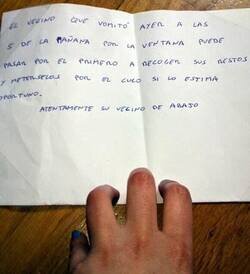 EL VECINO QUE VOMITÓ AYER A LAS
5 DE LA MAÑANA POR LA VENTANA PUEDE
PASAR POR EL PRIMERO A RECOGER SUS RESTOS
Y METERSELOS POR EL CULO SI LO ESTIMA
OPORTUNO.
ATENTAMENTE SU VECINO DE ABAJO